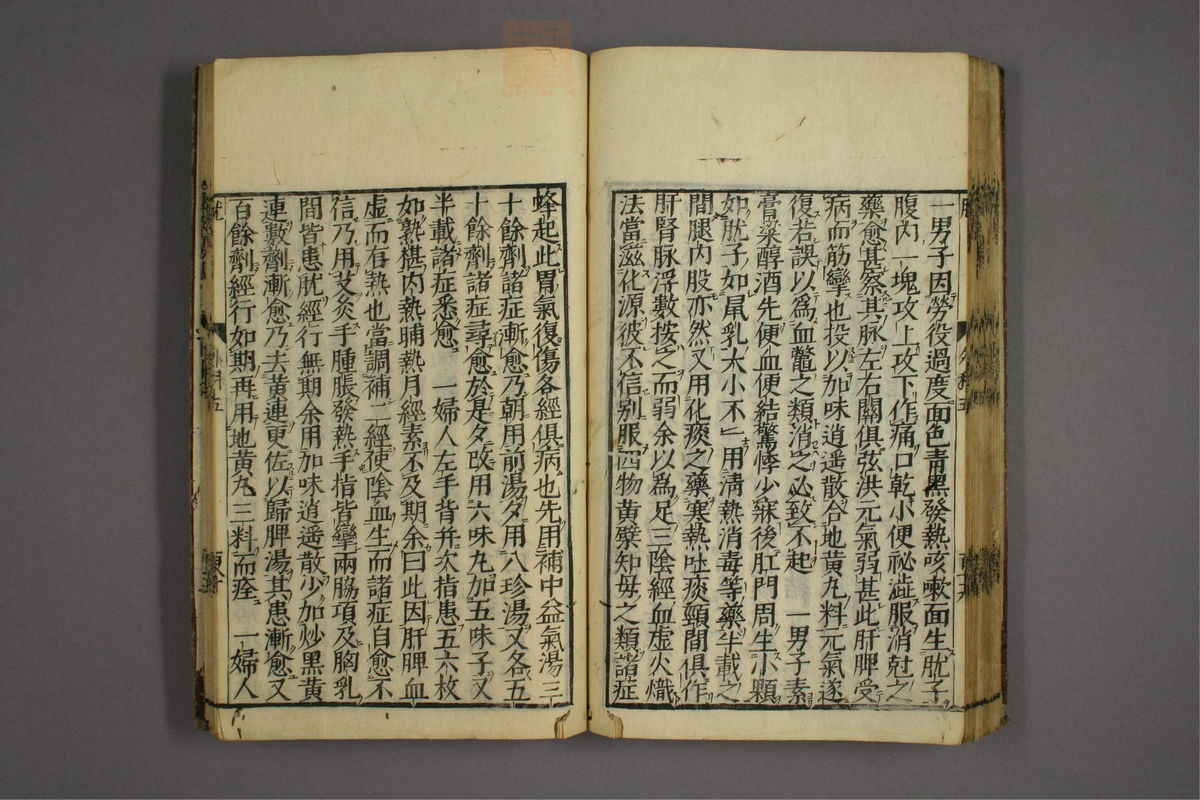 一男子因勞役過度面色青黑發熱咳嗽面生肬子
腹內一塊攻上攻下作痛口乾小便祕澁服消尅之
藥愈甚察其脉左右關俱弦洪元氣弱甚此肝脾受
病而筋攣也投以加味逍遥散合地黃丸料元氣遂
復若誤以爲血鼈之類消之必致不起　一男子素
膏粱醇酒先便血便結驚悸少寐後肛門周生小顆
如肬子如鼠乳大小不一用淸熱消毒等藥半載之
間腿內股亦然又用化痰之藥寒熱吐痰頸間俱作
肝腎脉浮數按之而弱余以爲足三陰經血虚火熾
法當滋化源彼不信别服四物黃蘗知母之類諸症
蜂起此胃氣復傷各經俱病也先用補中益氣湯三
十餘劑諸症漸愈乃朝用前湯夕用八珍湯又各五
十餘劑諸症尋愈於是夕改用六味丸加五味子又
半載諸症悉愈　一婦人左手背并次指患五六枚
如熟椹內熱晡熱月經素不及期余曰此因肝脾血
虚而有熱也當調補二經使陰血生而諸症自愈不
信乃用艾灸手腫脹發熱手指皆攣兩脇項及胸乳
間皆患肬經行無期余用加味逍遥散少加炒黑黃
連數劑漸愈乃去黃連更佐以歸脾湯其患漸愈又
百餘劑經行如期再用地黃丸三料而痊　一婦人